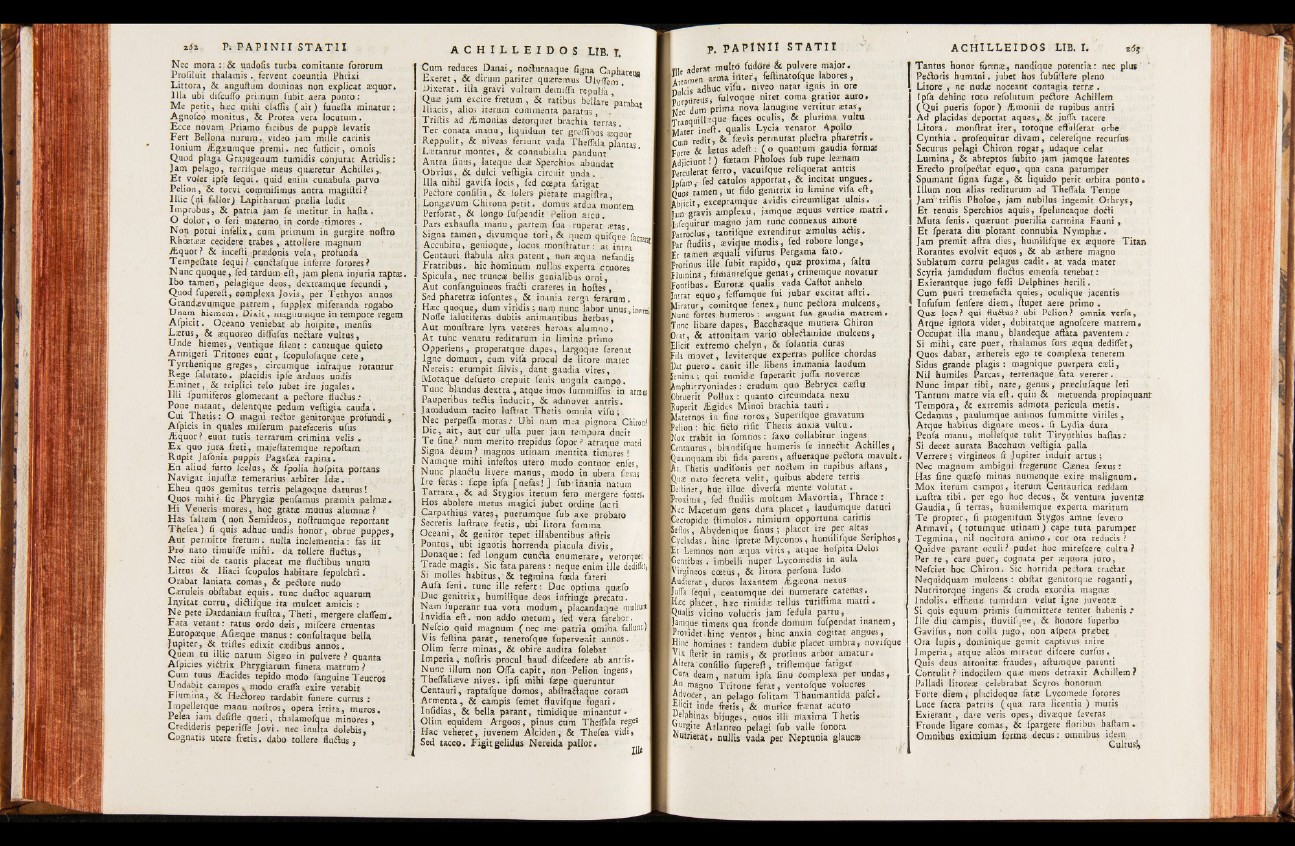 262 P. PAPINII STATII
Nec mora : & undosis turba comitante sororum
Prosiluit thalamis. fervent coeuntia Phrixi
Littora, & angustum dominas non explicat æquor.
Illa ubi discusso primum subit aera ponto:
Me petit, hæc mihi classis (ait) funesta minatur:
Agnosco monitus, & Protea vera locutum.
Ecce novam Priamo facibus de puppe levatis
Fert Bellona nurum. video jam mille carinis
Ionium Ægæumque premi. nec sufficit, omnis
Quod plaga Grajugenum tumidis conjurat Atridis:
Jam pelago, terrisque meus quæretur Achilles,
Et volet ipse sequi. quid enim cunabula parvo
Pelion, & torvi commisimus antra magistri?
Illic (ni fallor) Lapitharum prælia ludit
Improbus, & patria jam se metitur in hasta.
O dolor, o seri materno in corde timores.
Non potui infelix, cum primum in gurgite nostro
Rhœteæ cecidere trabes, attollere magnum
Æquor? & incesti prædonis vela, profunda
Tempestate sequi? cunctasque inferre sorores?
Nunc quoque, sed tardum est, jam plena injuria raptæ.
Ibo tamen, pelagique deos, dextramque secundi,
Quod superest, complexa Jovis, per Tethyos annos
Grandævumque patrem, supplex miseranda rogabo
Unam hiemem. Dixit, magnumque in tempore regem
Aspicit. Oceano veniebat ab hospite, mensis
Lætus, & æquoreo diffusus nectare vultus,
Unde hiemes, ventique silent: cantuque quieto
Armigeri Tritones eunt, scopulosaque cete,
Tyrrhenique greges, circumque infraque rotantur
Rege salutato. placidis ipse arduus undis
Eminet, & triplici telo jubet ire jugales.
Illi spumiferos glomerant a pectore fluctus:
Pone natant, delentque pedum vestigia cauda.
Cui Thetis: O magni rector genitorque profundi,
Aspicis in quales miserum patefeceris usus
Æquor? eunt tutis terrarum crimina velis.
Ex quo jura freti, majestatemque repostam
Rupit Jasonia puppis Pagasæa rapina.
En aliud furto scelus, & spolia hospita portans
Navigat injustæ temerarius arbiter Idæ.
Eheu quos gemitus terris pelagoque daturus!
Quos mihi? sic Phrygiæ pensamus præmia palmæ.
Hi Veneris mores, hoc gratæ munus alumnæ?
Has saltem (non Semideos, nostrumque reportant
Thesea) si quis adhuc undis honor, obrue puppes,
Aut permitte fretum. nulla inclementia: fas sit
Pro nato timuisse mihi. da tollere fluctus,
Nec tibi de tantis placeat me fluctibus unum
Littus & Iliaci scopulos habitare sepulchri.
Orabat laniata comas, & pectore nudo
Cæruleis obstabat equis. tunc ductor aquarum
Invitat curru, dictisque ita mulcet amicis:
Ne pete Dardaniam frustra, Theti, mergere classem.
Fata vetant: ratus ordo deis, miscere cruentas
Europæque Asiæque manus: consultaque bella
Jupiter, & tristes edixit cædibus annos.
Quem tu illic natum Sigæo in pulvere? quanta
Aspicies victrix Phrygiarum funera matrum?
Cum tuus Æacides tepido modo sanguine Teucros
Undabit campos, modo crassa exire vetabit
Flumina, & Hectoreo tardabit funere currus:
Impelletque manu nostros, opera irrita, muros.
Pelea jam desiste queri, thalamosque minores,
Credideris peperisse Jovi. nec inulta dolebis,
Cognatis utere fretis. dabo tollere fluctus,
ACHILLEIDOS LIB. I.
Cum reduces Danai, nocturnaque signa Caphareus
Exeret, & dirum pariter quæremus Ulyssem.
Dixerat. illa gravi vultum demissa repulsa,
Quæ jam excire fretum, & ratibus bellare parabat
Iliacis, alios iterum commenta paratus,
Tristis ad Æmonias detorquet brachia terras.
Ter conata manu, liquidum ter gressibus æquor
Reppulit, & niveas feriunt vada Thessala plantas.
Lætantur montes, & connubialia pandunt
Antra sinus, lateque deæ Sperchios abundat
Obvius, & dulci vestigia circuit unda.
Illa nihil gavisa locis, sed cœpta fatigat
Pectore consilia, & solers pietate magistra,
Longævum Chirona petit. domus ardua montem
Perforat, & longo suspendit Pelion arcu.
Pars exhausta manu, partem sua ruperat ætas.
Signa tamen, divumque tori, & quem quisque sacrarit
Accubitu, genioque, locus monstratur: at intra
Centauri stabula alta patent, non æqua nefandis
Fratribus. hic hominum nullos experta cruores
Spicula, nec truncæ bellis genialibus orni,
Aut consanguineos fracti crateres in hostes,
Sed pharetræ insontes, & inania tergi ferarum.
Hæc quoque, dum viridis; nam nunc labor unus, inermi
Nosse salutiferas dubiis animantibus herbas,
Aut monstrare lyra veteres heroas alumno.
At tunc venatu rediturum in limine primo
Opperiens, properatque dapes, largoque serenat
Igne domum, cum visa procul de litore mater
Nereis: erumpit silvis, dant gaudia vires,
Notaque desueto crepuit senis ungula campo.
Tunc blandus dextra, atque imos summissus in armos
Pauperibus tectis inducit, & admovet antris.
Jamdudum tacito lustrat Thetis omnia visu;
Nec perpessa moras: Ubi nam mea pignora Chiron?
Dic, ait, aut cur ulla puer jam tempora ducit
Te sine? num merito trepidus sopor? atraque matri
Signa deum? magnos utinam mentita timores!
Namque mihi infestos utero modo contuor enses,
Nunc planctu livere manus, modo in ubera sævas
Ire feras: sæpe ipsa [nefas!] sub inania natum
Tartara, & ad Stygios iterum fero mergere fontes.
Hos abolere metus magici jubet ordine sacri
Carpathius vates, puerumque sub axe probato
Secretis lustrare fretis, ubi litora summa
Oceani, & genitor tepet illabentibus astris
Pontus, ubi ignotis horrenda piacula divis,
Donaque: sed longum cuncta enumerare, vetorque:
Trade magis. Sic fata parens: neque enim ille dedisset,
Si molles habitus, & tegmina fœda fateri
Ausa seni. tunc ille refert: Duc optima quæso
Duc genitrix, humilique deos infringe precatu.
Nam superant tua vota modum, placandaque multum
Invidia est. non addo metum, sed vera fatebor.
Nescio quid magnum (nec me patria omina fallunt)
Vis festina parat, tenerosque supervenit annos.
Olim ferre minas, & obire audita solebat
Imperia, nostris procul haud discedere ab antris.
Nunc illum non Ossa capit, non Pelion ingens,
Thessaliæve nives. ipsi mihi sæpe queruntur
Centauri, raptasque domos, abstractaque coram
Armenta, & campis semet fluviisque fugari.
Insidias, & bella parant, timidique minantur.
Olim equidem Argoos, pinus cum Thessala reges
Hac veheret, juvenem Alciden, & Thesea vidi,
Sed taceo. Figit gelidus Nereida pallor.
Ille
P. PAPINII STATII
Ille aderat multo sudore & pulvere major.
Attamen arma inter, festinatosque labores,
Dulcis adhuc visu. niveo natat ignis in ore
Purpureus, fulvoque nitet coma gratior auro.
Nec dum prima nova lanugine vertitur ætas,
Tranquillæque faces oculis, & plurima vultu
Mater inest. qualis Lycia venator Apollo
Cum redit, & sævis permutat plectra pharetris.
Forte & lætus adest: (o quantum gaudia formæ
Adjiciunt!) fœtam Pholoes sub rupe leænam
Perculerat ferro, vacuisque reliquerat antris
Ipsam, sed catulos apportat, & incitat ungues.
Quos tamen, ut fido genitrix in limine visa est,
Abjicit, exceptamque avidis circumligat ulnis.
Jam gravis amplexu, jamque æquus vertice matri.
Insequitur magno jam tunc connexus amore
Patroclus, tantisque extenditur æmulus actis.
Par studiis, ævique modis, sed robore longe,
Et tamen æquali visurus Pergama fato.
Protinus ille subit rapido, quæ proxima, saltu
Flumina, fumantesque genas, crinemque novatur
Fontibus. Eurotæ qualis vada Castor anhelo
Intrat equo, fessumque sui jubar excitat astri.
Miratur, comitque senex, nunc pectora mulcens,
Nunc fortes humeros: angunt sua gaudia matrem.
Tunc libare dapes, Bacchæaque munera Chiron
Orat, & attonitam vario oblectamine mulcens,
Elicit extremo chelyn, & solantia curas
Fila movet, leviterque expertas pollice chordas
Dat puero. canit ille libens immania laudum
Semina; qui tumidæ superarit jussa novercæ
Amphitryoniades: crudum quo Bebryca cæstu
Obruerit Pollux: quanto circumdata nexu
Ruperit Ægides Minoi brachia tauri:
Maternos in fine toros, Superisque gravatum
Pelion: hic ficto risit Thetis anxia vultu.
Nox trahit in somnos: saxo collabitur ingens
Centaurus, blandisque humeris se innectit Achilles,
Quamquam ibi fida parens, assuetaque pectora mavult.
At Thetis undisonis per noctem in rupibus astans,
Quæ nato secreta velit, quibus abdere terris
Destinet, huc illuc diversa mente volutat.
Proxima, sed studiis multum Mavortia, Thrace:
Nec Macetum gens dura placet, laudumque daturi
Cecropidæ stimulos. nimium opportuna carinis
Sestos, Abydenique sinus; placet ire per altas
Cycladas. hinc spretæ Myconos, humilisque Seriphos,
Et Lemnos non æqua viris, atque hospita Delos
Gentibus. imbelli nuper Lycomedis in aula
Virgineos cœtus, & litora persona ludo
Audierat, duros laxantem Ægæona nexus
Jussa sequi, centumque dei numerare catenas.
Hæc placet, hæc timidæ tellus tutissima matri.
Qualis vicino volucris jam sedula partu,
Jamque timens qua fronde domum suspendat inanem,
Providet hinc ventos, hinc anxia cogitat angues,
Hinc homines: tandem dubiæ placet umbra, novisque
Vix stetit in ramis, & protinus arbor amatur.
Altera consilio superest, tristemque fatigat
Cura deam, natum ipsa sinu complexa per undas,
An magno Tritone ferat, ventosque volucres
Advocet, an pelago solitam Thaumantida pasci.
Elicit inde fretis, & murice frænat acuto
Delphinas bijuges, quos illi maxima Thetis
Gurgite Atlanteo pelagi sub valle sonora
Nutrierat. nullis vada per Neptunia glaucæ
ACHILLEIDOS LIB. I. 263
Tantus honor formæ, nandique potentia: nec plus
Pectoris humani. jubet hos subsistere pleno
Litore, ne nudæ noceant contagia terræ.
Ipsa dehinc toro resolutum pectore Achillem
(Qui pueris sopor) Æmonii de rupibus antri
Ad placidas deportat aquas, & jussa tacere
Litora. monstrat iter, totoque effulserat orbe
Cynthia. prosequitur divam, celeresque recursus
Securus pelagi Chiron rogat, udaque celat
Lumina, & abreptos subito jam jamque latentes
Erecto prospectat equo, qua cana parumper
Spumant signa fugæ, & liquido perit orbita ponto.
Illum non alias rediturum ad Thessala Tempe
Jam tristis Pholoe, jam nubilus ingemit Othrys,
Et tenuis Sperchios aquis, speluncaque docti
Muta senis. quærunt puerilia carmina Fauni,
Et sperata diu plorant connubia Nymphæ.
Jam premit astra dies, humilisque ex æquore Titan
Rorantes evolvit equos, & ab æthere magno
Sublatum curru pelagus cadit. at vada mater
Scyria jamdudum fluctus emensa tenebat:
Exierantque jugo fessi Delphines herili.
Cum pueri tremefacta quies, oculique jacentis
Infusum sensere diem, stupet aere primo.
Quæ loca? qui fluctus? ubi Pelion? omnia versa,
Atque ignota videt, dubitatque agnoscere matrem,
Occupat illa manu, blandeque affata paventem:
Si mihi, care puer, thalamos fors æqua dedisset,
Quos dabat, æthereis ego te complexa tenerem
Sidus grande plagis: magnique puerpera cæli,
Nil humiles Parcas, terrenaque fata vererer.
Nunc impar tibi, nate, genus, præclusaque leti
Tantum matre via est. quin & metuenda propinquant
Tempora, & extremis admota pericula metis.
Cedamus, paulumque animos summitte viriles,
Atque habitus dignare meos. si Lydia dura
Pensa manu, mollesque tulit Tirynthius hastas:
Si decet aurata Bacchum vestigia palla
Verrere; virgineos si Jupiter induit artus;
Nec magnum ambigui fregerunt Cænea sexus:
Has sine quæso minas numenque exire malignum.
Mox iterum campos, iterum Centaurica reddam
Lustra tibi. per ego hoc decus, & ventura juventæ
Gaudia, si terras, humilemque experta maritum
Te propter, si progenitum Stygos amne severo
Armavi, (totumque utinam) cape tuta parumper
Tegmina, nil nocitura animo. cur ora reducis?
Quidve parant oculi? pudet hoc mitescere cultu?
Per te, care puer, cognata per æquora juro,
Nesciet hoc Chiron. Sic horrida pectora tractat
Nequidquam mulcens: obstat genitorque roganti,
Nutritorque ingens & cruda exordia magnæ
Indolis. effrenæ tumidum velut igne juventæ
Si quis equum primis summittere tentet habenis:
Ille diu campis, fluviisque, & honore superbo
Gavisus, non colla jugo, non aspera præbet
Ora lupis, dominique gemit captivus inire
Imperia, atque alios miratur discere cursus.
Quis deus attonitæ fraudes, astumque parenti
Contulit? indocilem quæ mens detraxit Achillem?
Palladi litoreæ celebrabat Scyros honorum
Forte diem, placidoque satæ Lycomede sorores
Luce sacra patriis (quæ rara licentia) muris
Exierant, dare veris opes, divæque severas
Fronde ligare comas, & spargere floribus hastam.
Omnibus eximium formæ decus: omnibus idem
Cultus,